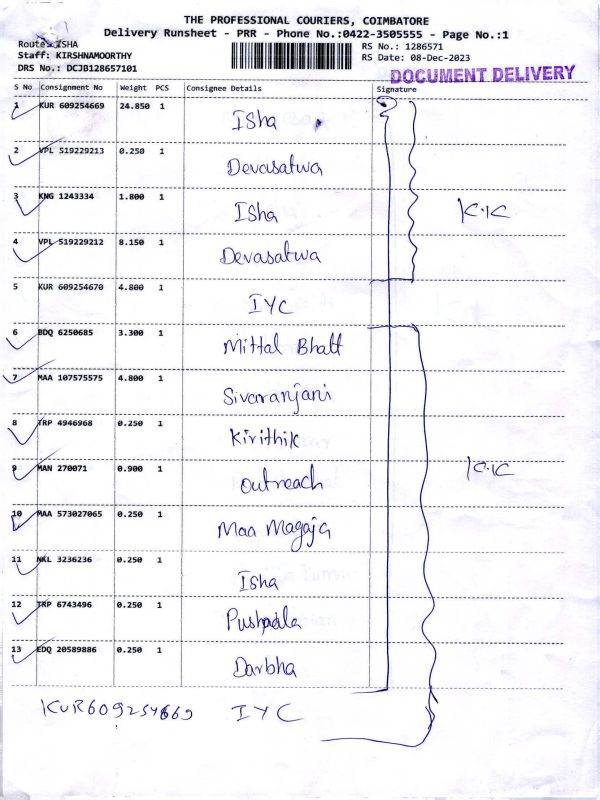 THE PROFESSIONAL COURIERS, COIMBATORE
Delivery Runsheet - PRR - Phone No.:0422-3505555 - Page No.:1
Route: ISHA
Staff: KIRSHNAMOORTHY
DRS No.: DCJB128657101
RS No.: 1286571
RS Date: 08-Dec-2023
DOCUMENT DELIVERY
S No Consignment No Weight PCS Consignee Details Signature
1 KUR 609254669 24.850 1 Isha
2 VPL 519229213 0.250 1 Devasatwa
3 KNG 1243334 1.800 1 Isha K.K
4 VPL 519229212 8.150 1 Devasatwa
5 KUR 609254670 4.800 1 IYC
6 BDQ 6250685 3.300 1 Mittal Bhatt
7 MAA 107575575 4.800 1 Sivaranjani
8 TRP 4946968 0.250 1 Kirithik
9 MAN 270071 0.900 1 Outreach K.K
10 MAA 573027065 0.250 1 Maa Magaja
11 NKL 3236236 0.250 1 Isha
12 TRP 6743496 0.250 1
13 EDQ 20589886 0.250 1 Darbha
KUR609254669 IYC